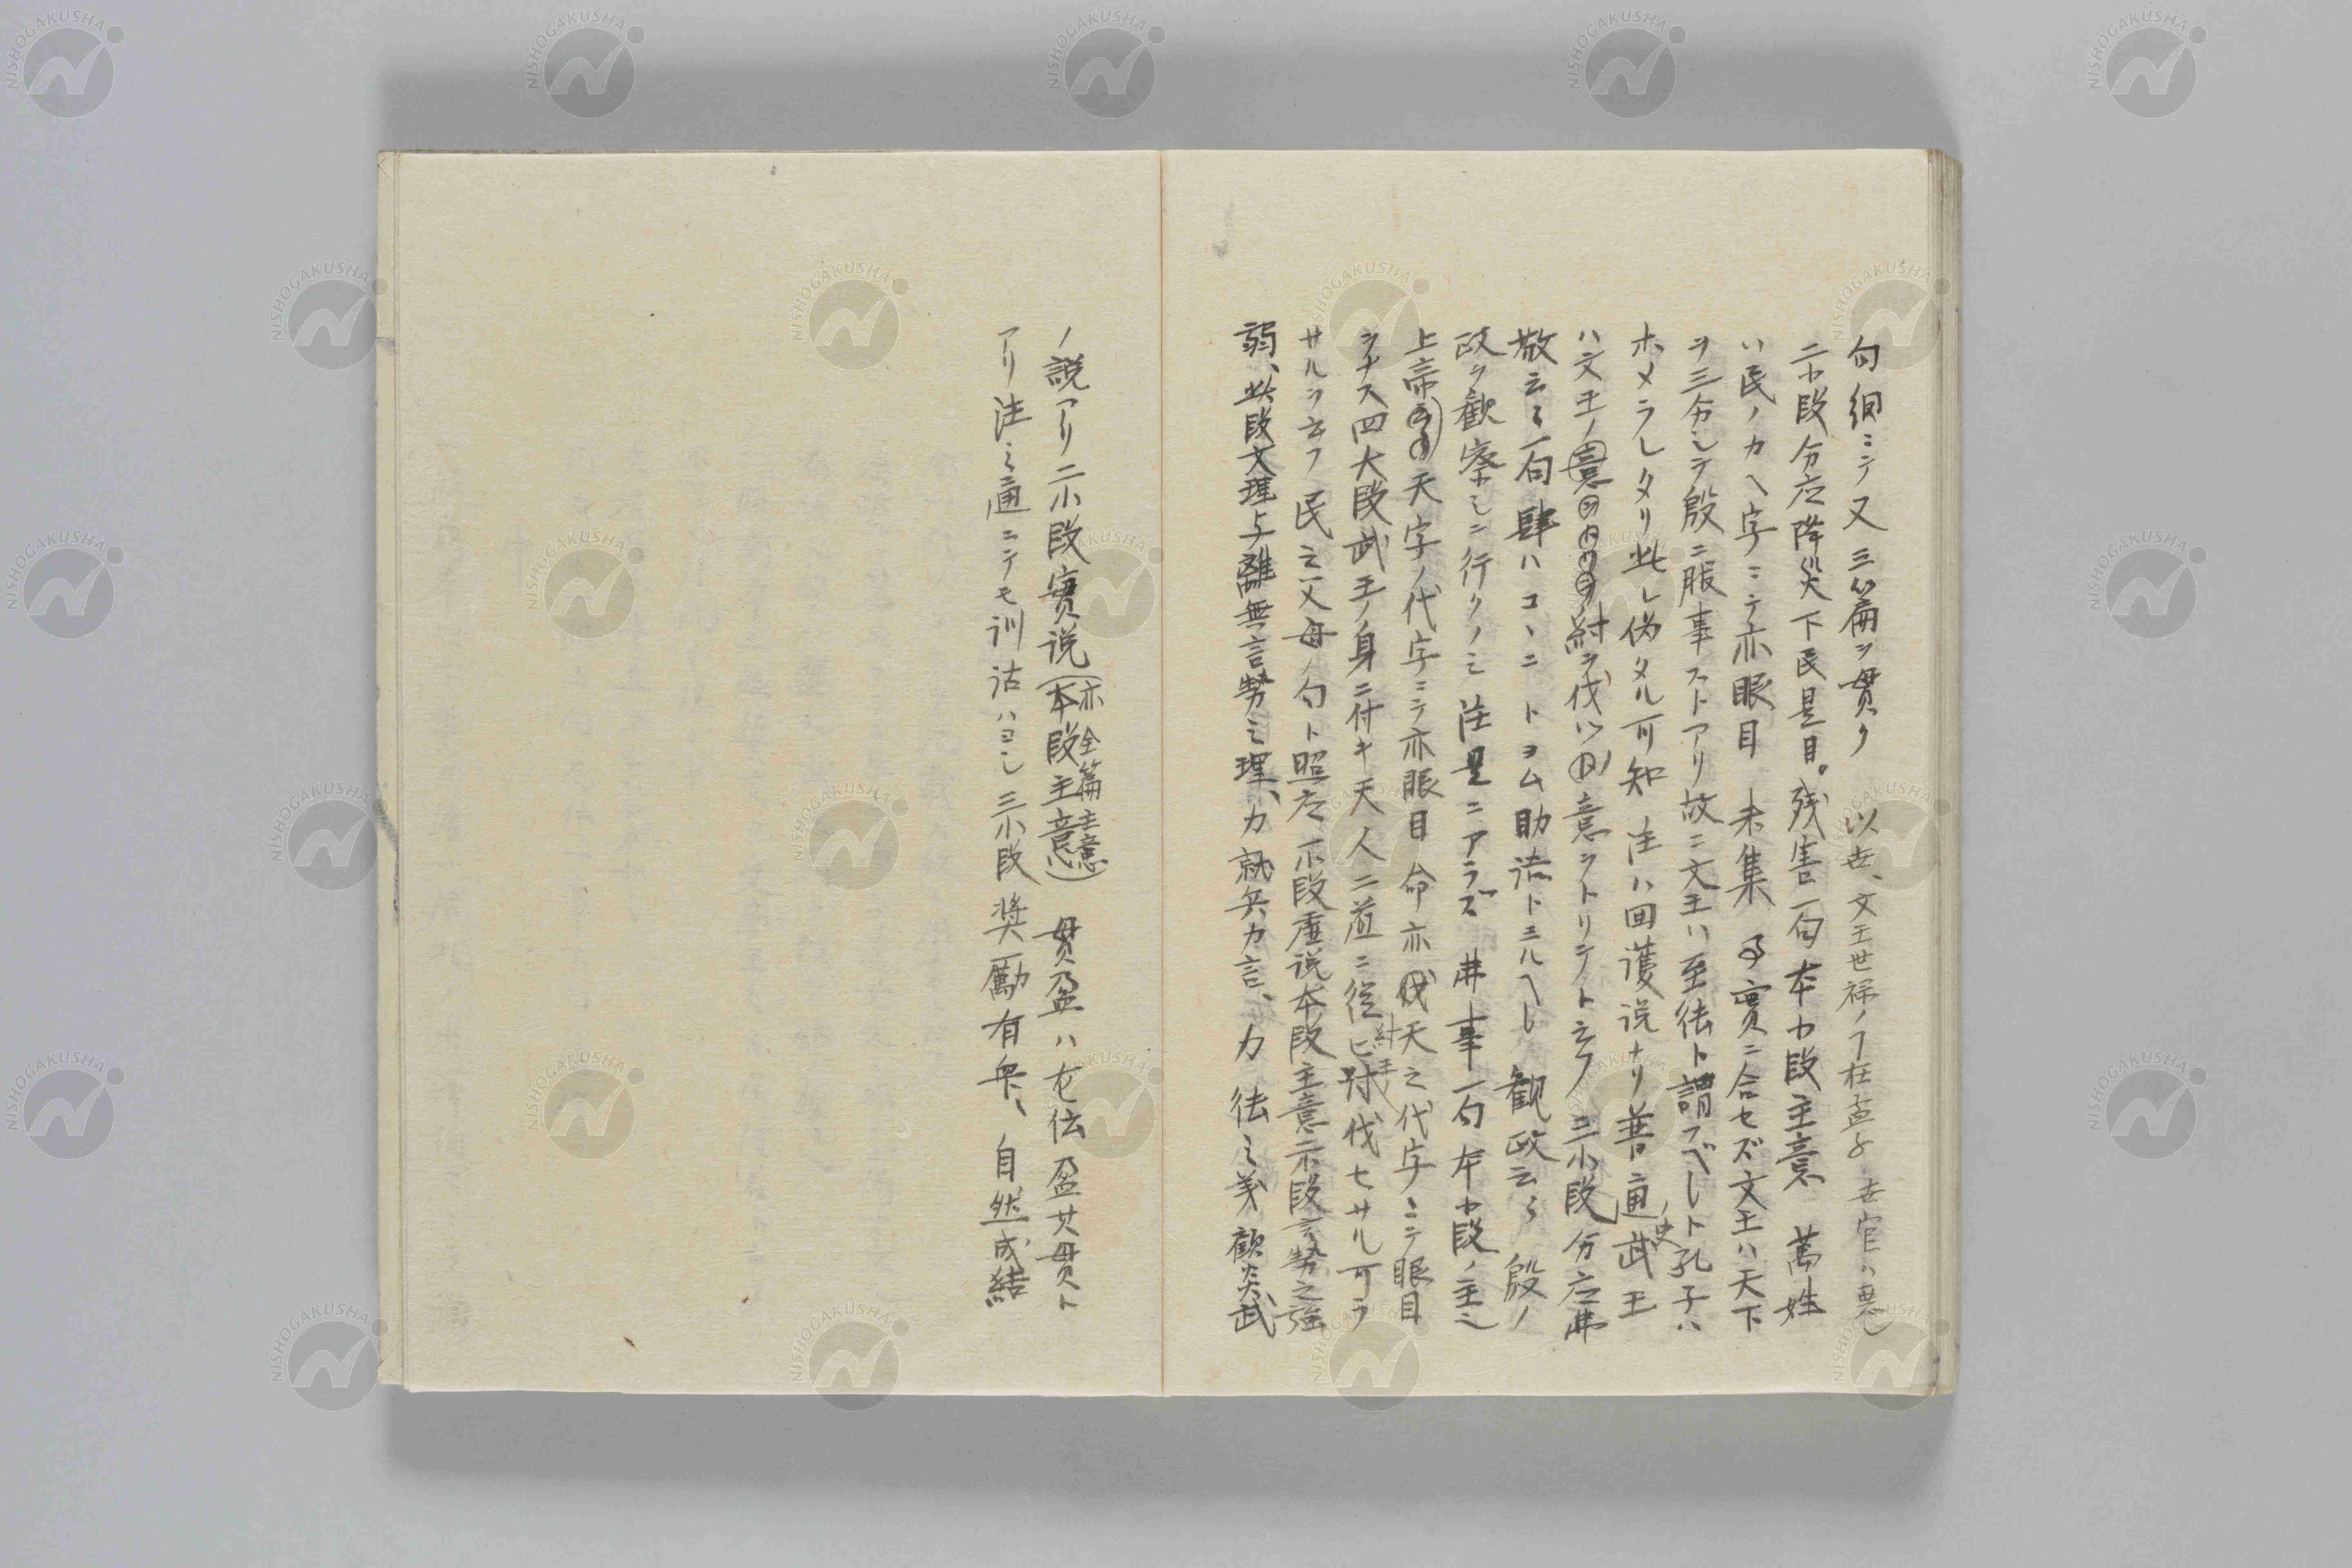 句綱ニテ又三篇ヲ貫ク 以世、文王世禄ノ在孟子 世官ハ悪シ
二小段分応降災下民是目。残害一句本小段主意 萬姓
ハ民ノカヘ字ニテ亦眼目 未集 事實ニ合セズ文王ハ天下
ヲ三分シテ殷ニ服事ストアリ故ニ文王ハ至徳ト謂フベシト孔子ハ
ホメラレタリ此レ偽タル可知 注ハ回護説ナリ普通武王
ハ文王ノ意 紂ヲ伐ツ 意ヲトリテト云フ 三小段分応弗
敬云々一句 肆ハコヽニトヨム助語トミルヘシ 観政云々 殷ノ
政ヲ観察シニ行クノミ 注是ニアラズ 弗事一句本小段ノ主ミ
上帝 天字ノ代字ニテ亦眼目 命亦 天之代字ニテ眼目
ヲナス四大段武王ノ身ニ付キ天人二道ニ従ヒ討伐セサル可ラ
紂王
サルヲ云フ 民之父母ノ句ト照応 一小段虚説本段主意示段言勢之強
弱、此段文理与離無言勢之理、力就兵力言、力 徳之義 歓炎武
ノ説アリ 二小段實説(本段主意 亦全篇主意) 貫盈ハ左伝盈其貫ト
アリ 注之通ニテモ訓詁ハヨシ 三小段奨励有衆、 自然成結
NISHOGAKUSHA